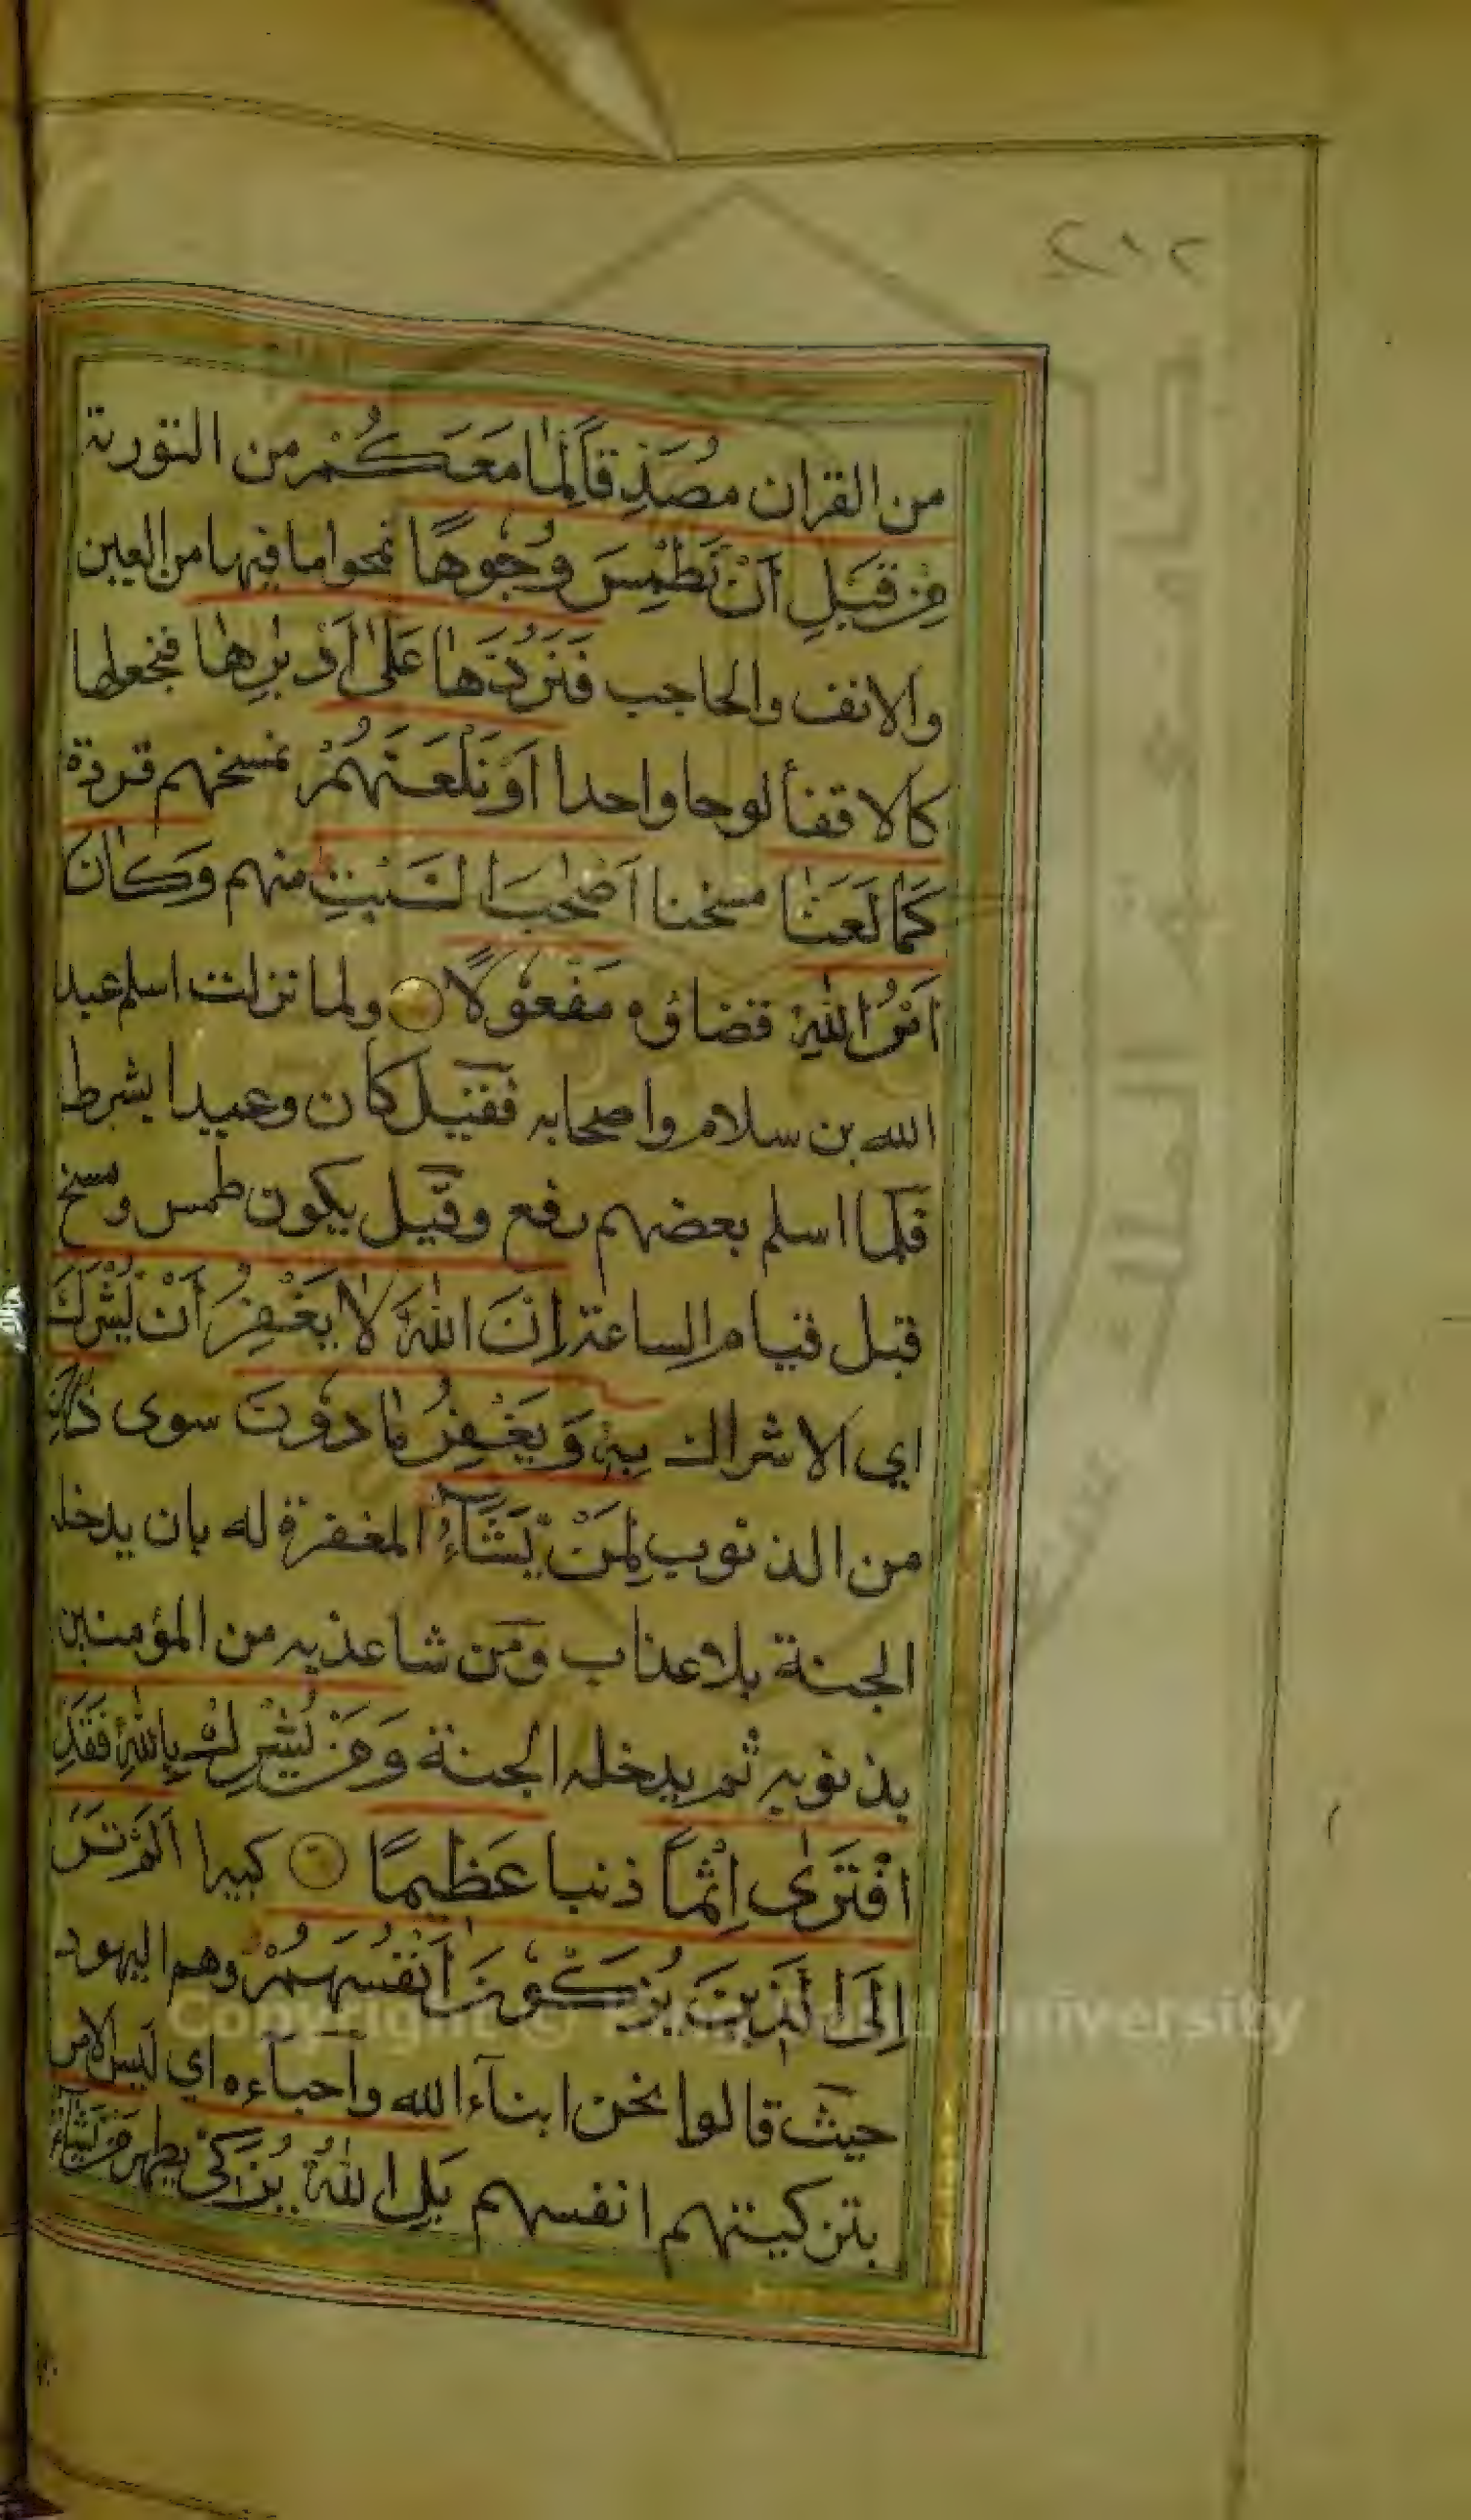 ٢١٢
من القران مُصَدِّقًا لِمَا مَعَكُمْ من التورىة
مِنْ قَبْلِ اَنْ نَطْمِسَ وُجُوهًا نمحوا ما فيها من العين
والانف والحاجب فَنَرُدَّهَا عَلٰى اَدْبٰرِهَا فنجعلها
كالاقفأ لوحا واحدا اَوْ نَلْعَنَهُمْ نمسخهم قردة
كَمَا لَعَنَّا مسخنا اَصْحٰبَ السَّبْتِ منهم وَكَانَ
اَمْرُ اللّٰهِ قضاؤه مَفْعُولًا ولما نزلت اسلم عبد
الله بن سلام واصحابه فقيل كان وعيدا بشرط
فلما اسلم بعضهم رفع وقيل يكون طمس ومسخ
قبل قيام الساعة اِنَّ اللّٰهَ لَا يَغْفِرُ اَنْ يُشْرَكَ
اي الاشراك بِهٖ وَيَغْفِرُ مَا دُونَ سوى ذٰلِكَ
من الذنوب لِمَنْ يَّشَآءُ المغفرة له بان يدخله
الجنة بلا عذاب ومن شا عذبه من المؤمنين
بذنوبه ثم يدخله الجنة وَمَنْ يُشْرِكْ بِاللّٰهِ فَقَدِ
افْتَرٰى اِثْمًا ذنبا عَظِيمًا كبيرا اَلَمْ تَرَ
اِلَى الَّذِينَ يُزَكُّونَ اَنْفُسَهُمْ وهم اليهود
حيث قالوا نحن ابنآء الله واحبآءه اي ليس الامر
بتزكيتهم انفسهم بَلِ اللّٰهُ يُزَكِّي يطهر مَنْ يَّشَآءُ
Copyright © University